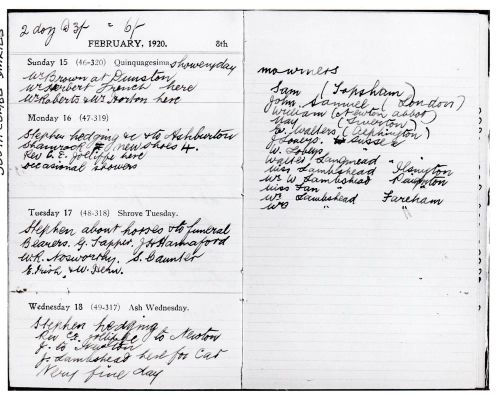 2 doz @ 3/- = 6/-
FEBRUARY, 1920. 8th
Sunday 15 (46-320) Quinquagesima showery day
Mr Brown at Dunston
Mr Herbert French here
Mr Roberts & Mr Horton here
Monday 16 (47-319)
Stephen hedging &c & to Ashburton
Shamrock new shoes 4.
Rev C. E. Jolliffe here
occasional showers
Tuesday 17 (48-318) Shrove Tuesday.
Stephen about horses & to funeral
Bearers. G. Tapper. J. Hannaford
W.R. Nosworthy. S. Caunter
E. Irish, & W. Hehn.
Wednesday 18 (49-317) Ash Wednesday.
Stephen hedging
Rev C.E. Jolliffe to Newton
J. to Newton
J. Lambshead here for Cat
Very fine day
mourners
Sam (Topsham)
John, Samuel (London)
William (Newton abbot)
May (Tiverton)
Walters (Alphington)
Sussex
W. Lobeys
Walter Langmead " Ilsington
Miss Lambshead
Mr W Lambshead Paignton
Miss Fan "
Mr Lambshead Fareham
Mrs " "